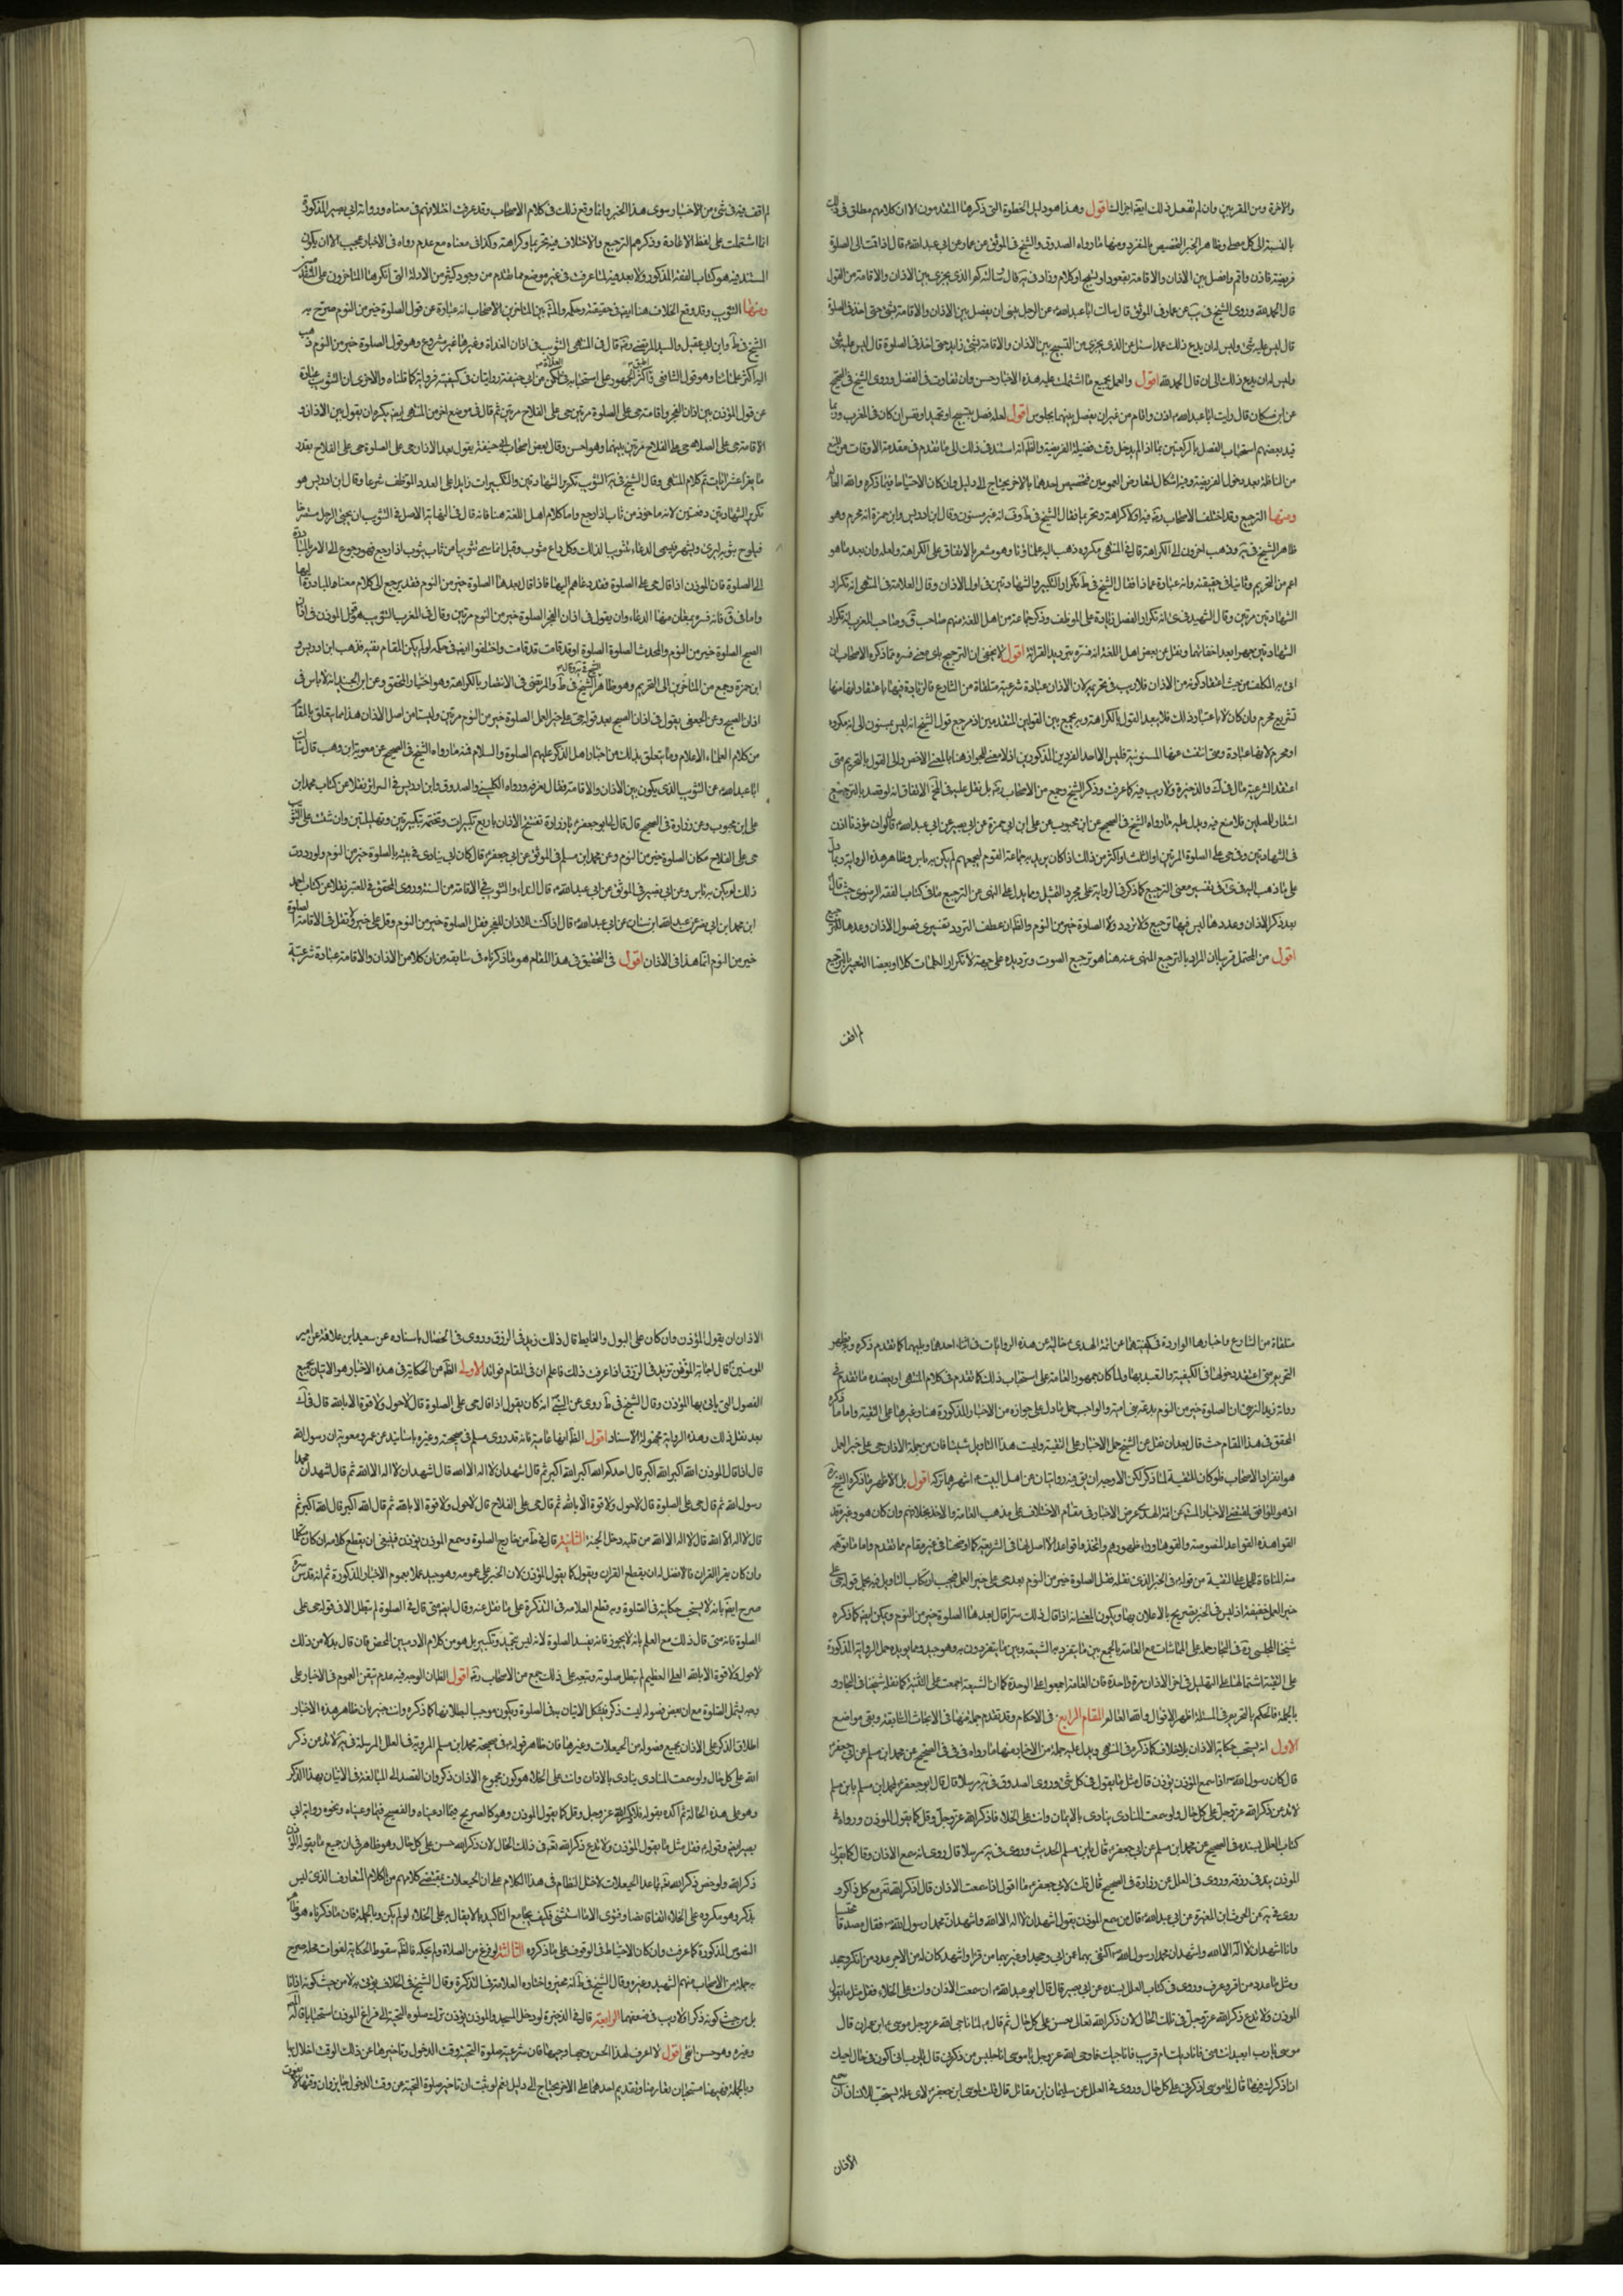 والاخرة ومن المقربين وان لم تفعل ذلك ايضا اجزا اقول وهذا هو دليل الخطوة التي ذكرها المتقدمون الا ان كلامهم مطلق في ذلك
بالنسبة الى كل مصل وظاهر الخبر التخصيص بالمفرد ومنها ما رواه الصدوق والشيخ في الموثق عن عمار عن ابي عبد الله ع قال اذا قمت الى الصلوة
فريضة فاذن واقم وافصل بين الاذان والاقامة بقعود او بتسبيح او كلام وزاد في يه قال سالته كم الذي يجزي بين الاذان والاقامة من القول
قال الحمد لله وروى الشيخ في يب عن عمار في الموثق قال سالت ابا عبد الله ع عن الرجل ينسى ان يفصل بين الاذان والاقامة بشئ حتى اخذ في الصلوة
قال ليس عليه شئ وليس له ان يدع ذلك عمدا سئل عن الذي يجزي من التسبيح بين الاذان والاقامة
وليس له ان يدع ذلك الى ان قال الحمد لله اقول والعمل بجميع ما اشتملت عليه هذه الاخبار حسن وان تفاوت في الفضل وروى الشيخ في الصحيح
عن ابن مسكان قال رايت ابا عبد الله ع اذن واقام من غير ان يفصل بينهما بجلوس اقول لعله فصل بتسبيح او تحميد او نفس ان كان في المغرب وربما
قيد بعضهم استحباب الفصل بالركعتين بما اذا لم يدخل وقت فضيلة الفريضة والظ انه استند في ذلك الى ما تقدم في مقدمة الاوقات من المنع
من النافلة بعد دخول الفريضة وفيه اشكال لتعارض العمومين فتخصيص احدهما بالاخر يحتاج الى دليل وان كان الاحتياط فيما ذكره والله العالم
ومنها الترجيع وقد اختلف الاصحاب رضه فيه او لا كراهة وتحريما فقال الشيخ في ط وف انه غير مسنون وقال ابن ادريس وابن حمزة انه محرم وهو
ظاهر الشيخ في يه وذهب اخرون الى الكراهة قال في المنتهى مكروه ذهب اليه علماؤنا وهو مشعر بالاتفاق على الكراهة ولعله وان بعد ما هو
اعم من التحريم وثانيا في حقيقته وانه عبارة عما ذا فقال الشيخ في ط تكرار التكبير والشهادتين في اول الاذان وقال العلامة في المنتهى انه تكرار
الشهادتين مرتين وقال الشهيد في كرى انه تكرار الفصل زيادة على الموظف وذكر جماعة من اهل اللغة منهم صاحب ق وصاحب المغرب انه تكرار
الشهادتين جهرا بعد اخفائهما ونقل عن بعض اهل اللغة انه فسره بترديد القرائة اقول لا يخفى ان الترجيع باي معنى فسره مما ذكره الاصحاب ان
اتى به المكلف من حيث اعتقاد كونه من الاذان فلا ريب في تحريمه لان الاذان عبادة شرعية متلقاة من الشارع فالزيادة فيها باعتقاد انها منها
تشريع محرم وان كان لا باعتبار ذلك فلا يبعد القول بالكراهة وبه يجمع بين القولين المتقدمين اذ مرجع قول الشيخ انه ليس بمسنون الى انه مكروه
او محرم لانها عبادة ومتى انتفت عنها المسنونية فليس الا احد الفردين المذكورين اذ لا معنى للجواز هنا بالمعنى الاخص والى القول بالتحريم متى
اعتقد الشرعية مال في ك والذخيرة ولا ريب فيه كما عرفت وذكر الشيخ وجمع من الاصحاب رضه بل نقل عليه في المخ الاتفاق انه لو قصد بالترجيع
اشعار المصلين فلا منع فيه ويدل عليه ما رواه الشيخ في الصحيح عن ابن محبوب عن علي ابن ابي حمزة عن ابي بصير عن ابي عبد الله ع قال لو ان مؤذنا اذن
في الشهادتين وفي حي على الصلوة المرتين او الثلث او اكثر من ذلك اذا كان يريد به جماعة القوم ليجمعهم لم يكن به باس وظاهر هذه الرواية ربما دل
على ما ذهب اليه في كرى في تفسير معنى الترجيع كما ذكر في الرواية على مجرد التمثيل ومما يدل على النهي عن الترجيع ما في كتاب الفقه الرضوي حيث قال
بعد ذكر الاذان وعددها ليس فيها ترجيع ولا تردد ولا الصلوة خير من النوم والظ ان عطف التردد تفسيري
اقول من المحتمل قريبا ان المراد بالترجيع المنهي عنه هنا هو ترجيع الصوت وترديده على جهة لا تكرار الكلمات
لم اقف
لم اقف فيه في شئ من الاخبار سوى هذا الخبر وانما وقع ذلك في كلام الاصحاب وقد عرفت اختلافهم في معناه ورواية ابي بصير المذكورة
انما اشتملت على لفظ الاعادة وذكرهم الترجيع والاختلاف فيه تحريما وكراهة وكذا في معناه مع عدم رواه في الاخبار عجيب الا ان يكون
المستند فيه هو كتاب الفقه المذكور ولا بعد فيه لما عرفت في غير موضع مما تقدم من وجود كثير من الادلة التي انكرها المتاخرون
ومنها التثويب وقد وقع الخلاف هنا ايضا في حقيقته وحكمه والمش بين المتاخرين الاصحاب انه عبارة عن قول الصلوة خير من النوم صرح به
الشيخ في ط وابن ابي عقيل والسيد المرتضى رضه قال في المنتهى التثويب في اذان الغداة وغيرها غير مشروع وهو قول الصلوة خير من النوم ذهب
اليه اكثر علمائنا وهو قول الشافعي واطبق اكثر الجمهور على استحبابه في الغداة لكن عن ابي حنيفة روايتان في كيفيته فرواية كما قلناه والاخرى ان التثويب عبارة
عن قول المؤذن بين اذان الفجر واقامته حي على الصلوة مرتين حي على الفلاح مرتين ثم قال في موضع اخر من المنتهى ايضا يكره ان يقول بين الاذان و
الاقامة حي على الصلاة حي على الفلاح مرتين بينهما وهو احسن وقال بعض اصحاب ابي حنيفة يقول بعد الاذان حي على الصلوة حي على الفلاح بقدر
ما يقرأ عشر ايات تم كلام المنتهى وقال الشيخ في يه التثويب تكرير الشهادتين والتكبيرات زائدا على العدد الموظف شرعا وقال ابن ادريس هو
تكرير الشهادتين دفعتين لانه ماخوذ من ثاب اذا رجع واما كلام اهل اللغة هنا فانه قال في النهاية الاصل في التثويب ان يجئ الرجل مستصرخا
فيلوح بثوبه ليرى ويشتهر فسمي الدعاء تثويبا لذلك وكل داع مثوب وقيل انما سمي تثويبا من ثاب يثوب اذا رجع فهو رجوع الى الامر بالمبادرة
الى الصلوة فان المؤذن اذا قال حي على الصلوة فقد دعاهم اليها فاذا قال بعدها الصلوة خير من النوم فقد رجع الى كلام معناه المبادرة اليها
واما في ق فانه فسره بمعان منها الدعاء وان يقول في اذان الفجر الصلوة خير من النوم مرتين وقال في المغرب التثويب هو قول المؤذن في اذان
الصبح الصلوة خير من النوم والمحدث الصلوة الصلوة او قد قامت قد قامت واختلفوا ايضا في حكمه لو لم يكن المقام تقية فذهب ابن ادريس و
ابن حمزة وجمع من المتاخرين الى التحريم وهو ظاهر الشيخ في ط والمرتضى في الانتصار بالكراهة وهو اختيار المحقق وعن ابن الجنيد انه لا باس في
اذان الصبح وعن الجعفي يقول في اذان الصبح بعد قوله حي على خير العمل الصلوة خير من النوم مرتين وليستا من اصل الاذان هذا ما يتعلق بالمقام
من كلام العلماء الاعلام وما يتعلق بذلك من اخبار اهل الذكر عليهم الصلوة والسلام فمنه ما رواه الشيخ في الصحيح عن معوية ابن وهب قال سالت
ابا عبد الله ع عن التثويب الذي يكون بين الاذان والاقامة فقال ما نعرفه ورواه الكليني والصدوق وابن ادريس في السرائر نقلا عن كتاب محمد ابن
علي ابن محبوب وعن زرارة في الصحيح قال قال لي ابو جعفر ع يا زرارة تفتتح الاذان باربع تكبيرات وتختمه بتكبيرتين وتهليلتين وان شئت زدت على التثويب
حي على الفلاح مكان الصلوة خير من النوم وعن محمد ابن مسلم في الموثق عن ابي جعفر ع قال كان ابي ينادي في بيته بالصلوة خير من النوم ولو رددت
ذلك لم يكن به باس وعن ابي بصير في الموثق عن ابي عبد الله ع قال النداء والتثويب في الاقامة من السنة وروى المحقق في المعتبر نقلا عن كتاب احمد
ابن محمد ابن ابي نصر عن عبد الله ابن سنان عن ابي عبد الله ع قال اذا كنت في اذان الفجر فقل الصلوة خير من النوم وقل حي على خير العمل ولا تقل في الاقامة الصلوة
خير من النوم انما هذا في الاذان اقول في التحقيق في هذا المقام هو ما ذكرناه في سابقه من ان كلا من الاذان والاقامة عبادة شرعية
متلقاة من الشارع واخبارها الواردة في كيفيتهما عن ائمة الهدى ع خالية عن هذه الروايات في اثناء احدهما كما تقدم ذكره وبه يظهر
التحريم متى اعتقد دخولها في الكيفية والتعبد بها ولما كان جمهور العامة على استحباب ذلك كما تقدم في كلام المنتهى ويعضده ما تقدم في
رواية زيد النرسي ان الصلوة خير من النوم بدعة بني امية والواجب حمل ما دل على جوازه من الاخبار المذكورة هنا وغيرها على التقية واما ما ذكره
المحقق في هذا المقام حيث قال بعد ان نقل عن الشيخ حمل الاخبار على التقية ولست هذا التاويل شيئا فان من جملة الاذان حي على خير العمل
هو انفراد الاصحاب فلو كان للتقية لما ذكر لكن الاوجه ان يق فيه روايتان عن اهل البيت ع اشهرهما تركه اقول بل الاظهر ما ذكره الشيخ
اذ هو الموافق لمقتضى الاخبار عن ائمة الهدى بعرض الاخبار في مقام الاختلاف على مذهب العامة والاخذ بخلافهم وان كان هو وغيره قد
القوا هذه القواعد المنصوصة والقوها وراء ظهورهم واتخذوا قواعد لا اصل لها في الشريعة كما اوضحنا في غير مقام مما تقدم واما ما توهمه
من المنافاة للحمل على التقية من قوله في الخبر الذي نقله فقل الصلوة خير من النوم بعد حي على خير العمل فيجب ارتكاب التاويل فيه بحمل قوله حي على
خير العمل خفية اذ ليس في الخبر تصريح بالاعلان بها ويكون المعنى انه اذا قال ذلك سرا قال بعدها الصلوة خير من النوم ويمكن ايضا كما ذكره
شيخنا المجلسي ره في البحار حمله على المماشات مع العامة بالجمع بين ما يتفرد به الشيعة وبين ما يتفردون به وهو جيد ومما يؤيد حمل الرواية المذكورة
على التقية اشتمالها على التهليل في اخر الاذان مرة واحدة فان العامة اجمعوا على الوحدة كما ان الشيعة اجمعت على التثنية كما نقله شيخنا في البحار و
بالجملة فالحكم بالتحريم في المسئلة اظهر الاقوال والله العالم المقام الرابع في الاحكام وقد تقدم جملة منها في الابحاث السابقة وبقي مواضع
الاول انه يستحب حكاية الاذان بلا خلاف كما ذكره في المنتهى ويدل عليه جملة من الاخبار منها ما رواه في في في الصحيح عن محمد ابن مسلم عن ابي جعفر ع
قال كان رسول الله ص اذا سمع المؤذن يؤذن قال مثل ما يقول في كل شئ وروى الصدوق في يه مرسلا قال قال ابو جعفر ع لمحمد ابن مسلم يا ابن مسلم
لا تدعن ذكر الله عز وجل على كل حال ولو سمعت المنادي ينادي بالاذان وانت على الخلاء فاذكر الله عز وجل وقل كما يقول المؤذن ورواه في
كتاب العلل بسنده في الصحيح عن محمد ابن مسلم عن ابي جعفر ع قال يا ابن مسلم الحديث وروى في يه مرسلا قال روى ان من سمع الاذان وقال كما يقول
المؤذن زيد في رزقه وروى في العلل عن زرارة في الصحيح قال قلت لابي جعفر ع ما اقول اذا سمعت الاذان قال اذكر الله تعالى مع كل ذاكر و
روى في يه عن الحرث ابن المغيرة عن ابي عبد الله ع قال من سمع المؤذن يقول اشهد ان لا اله الا الله واشهد ان محمدا رسول الله ص فقال مصدقا محتسبا
وانا اشهد ان لا اله الا الله واشهد ان محمدا رسول الله ص اكتفى بهما عن ابى وجحد واعين بهما من اقر وشهد كان له من الاجر عدد من انكر وجحد
ومثل ما عدد من اقر وعرف وروى في كتاب العلل بسنده عن ابي بصير قال قال ابو عبد الله ع ان سمعت الاذان وانت على الخلاء فقل مثل ما يقول
المؤذن ولا تدع ذكر الله عز وجل في تلك الحال لان ذكر الله تعالى حسن على كل حال ثم قال ع لما ناجى الله عز وجل موسى ابن عمران قال
موسى يا رب ابعيد انت مني فاناديك ام قريب فاناجيك فاوحى الله عز وجل يا موسى انا جليس من ذكرني قال يا رب اني اكون في حال اجلك
ان اذكرك فيها قال يا موسى اذكرني على كل حال وروى في العلل عن سليمان ابن مقاتل قال قلت لموسى ابن جعفر ع لاي علة يستحب للانسان اذا سمع
الاذان
الاذان ان يقول كما يقول المؤذن وان كان على البول والغايط قال ذلك يزيد في الرزق وروى في الخصال باسناده عن سعيد ابن علاقة عن امير
المومنين ع قال اجابة المؤذن تزيد في الرزق اذا عرفت ذلك فاعلم ان في المقام فوائد الاولى الظ من الحكاية في هذه الاخبار هو الاتيان بجميع
الفصول التي ياتي بها المؤذن وقال الشيخ في ط روى عن النبي ص انه كان يقول اذا قال حي على الصلوة قال لا حول ولا قوة الا بالله قال في ك
بعد نقل ذلك وهذه الرواية مجهولة الاسناد اقول الظ انها عامية فانه قد روى مسلم في صحيحه وغيره باسانيد عن عمر ومعوية ان رسول الله
قال اذا قال المؤذن الله اكبر الله اكبر قال احدكم الله اكبر الله اكبر ثم قال اشهد ان لا اله الا الله قال اشهد ان لا اله الا الله ثم قال اشهد ان محمدا
رسول الله ثم قال حي على الصلوة قال لا حول ولا قوة الا بالله ثم قال حي على الفلاح قال لا حول ولا قوة الا بالله ثم قال الله اكبر قال الله اكبر ثم
قال لا اله الا الله قال لا اله الا الله من قلبه دخل الجنة الثانية قال في ط من كان خارج الصلوة وسمع المؤذن يؤذن فينبغي ان يقطع كلامه ان كان متكلما
وان كان يقرا القران فالافضل له ان يقطع القران ويقول كما يقول المؤذن لان الخبر على عمومه وهو جيد عملا بعموم الاخبار المذكورة ثم انه قدس سره
صرح ايضا بانه لا يستحب حكايته في الصلوة وبه قطع العلامة في التذكرة على ما نقل عنه وقال ايضا متى قاله في الصلوة لم تبطل الا في قوله حي على
الصلوة فانه متى قال ذلك مع العلم بانه لا يجوز فانه يفسد الصلوة لانه ليس تحميد وتكبير بل هو من كلام الادميين المحض فان قال بدلا من ذلك
لا حول ولا قوة الا بالله العلي العظيم لم تبطل صلوته وتبعه على ذلك جمع من الاصحاب رضه اقول الظ ان الوجه فيه عدم تيقن العموم في الاخبار على
وجه يشمل الصلوة مع ان بعض فصوله ليست ذكرا فيشكل الاتيان به في الصلوة ويكون موجبا لبطلانها كما ذكره وانت خبير بان ظاهر هذه الاخبار
اطلاق الذكر على الاذان بجميع فصوله من الحيعلات وغيرها فان ظاهر قوله في صحيحة محمد ابن مسلم المروية في العلل المرسلة في يه لا تدعن ذكر
الله على كل حال ولو سمعت المنادي ينادي بالاذان وانت على الخلاء هو كون مجموع الاذان ذكر وان القصد الى المبالغة في الاتيان بهذا الذكر
وهو على هذه الحالة ثم اكده بقوله فاذكر الله عز وجل وقل كما يقول المؤذن وهو كالصريح فيما ادعيناه والفصيح فيما وعيناه ونحوه رواية ابي
بصير ايضا وقوله فقل مثل ما يقول المؤذن ولا تدع ذكر الله تعالى في ذلك الحال لان ذكر الله حسن على كل حال وهو ظاهر في ان جميع ما يقوله المؤذن
ذكر الله ولو خص ذكر الله بما عدا الحيعلات لاختل النظام في هذا الكلام على ان الحيعلات بمقتضى كلامهم من الكلام المتعارف الذي ليس
بذكر وهو مكروه على الخلاء اتفاقا نصا وفتوى الا ما استثنى فكيف يجامع التاكيد بالاتيان به على الخلاء لو لم يكن وبالجملة فان ما ذكرناه هو ظاهر
النصوص المذكورة كما عرفت وان كان الاحتياط في الوقوف على ما ذكروه الثالثة لو فرغ من الصلاة ولم يحكه فالظ سقوط الحكاية لفوات محله صرح
به جملة من الاصحاب منهم الشهيد وغيره وقال الشيخ في ط انه مخير واختاره العلامة في التذكرة وقال الشيخ في الخلاف يؤتى به لا من حيث كونه اذانا
بل من حيث كونه ذكرا ولا ريب في ضعفهما الرابعة قال في الذخيرة لو دخل المسجد والمؤذن يؤذن ترك صلوة التحية الى فراغ المؤذن استحبابا قاله الشيخ
وغيره وهو حسن انتهى اقول لا اعرف لهذا الحسن وجها وجيها فان شرعية صلوة التحية وقت الدخول وتاخيرها عن ذلك الوقت اخلال بها
وبالجملة فههنا مستحبان تعارضا وتقديم احدهما على الاخر يحتاج الى دليل نعم لو ثبت ان تاخير صلوة التحية عن وقت الدخول جايز وان وقتها لا يفوت